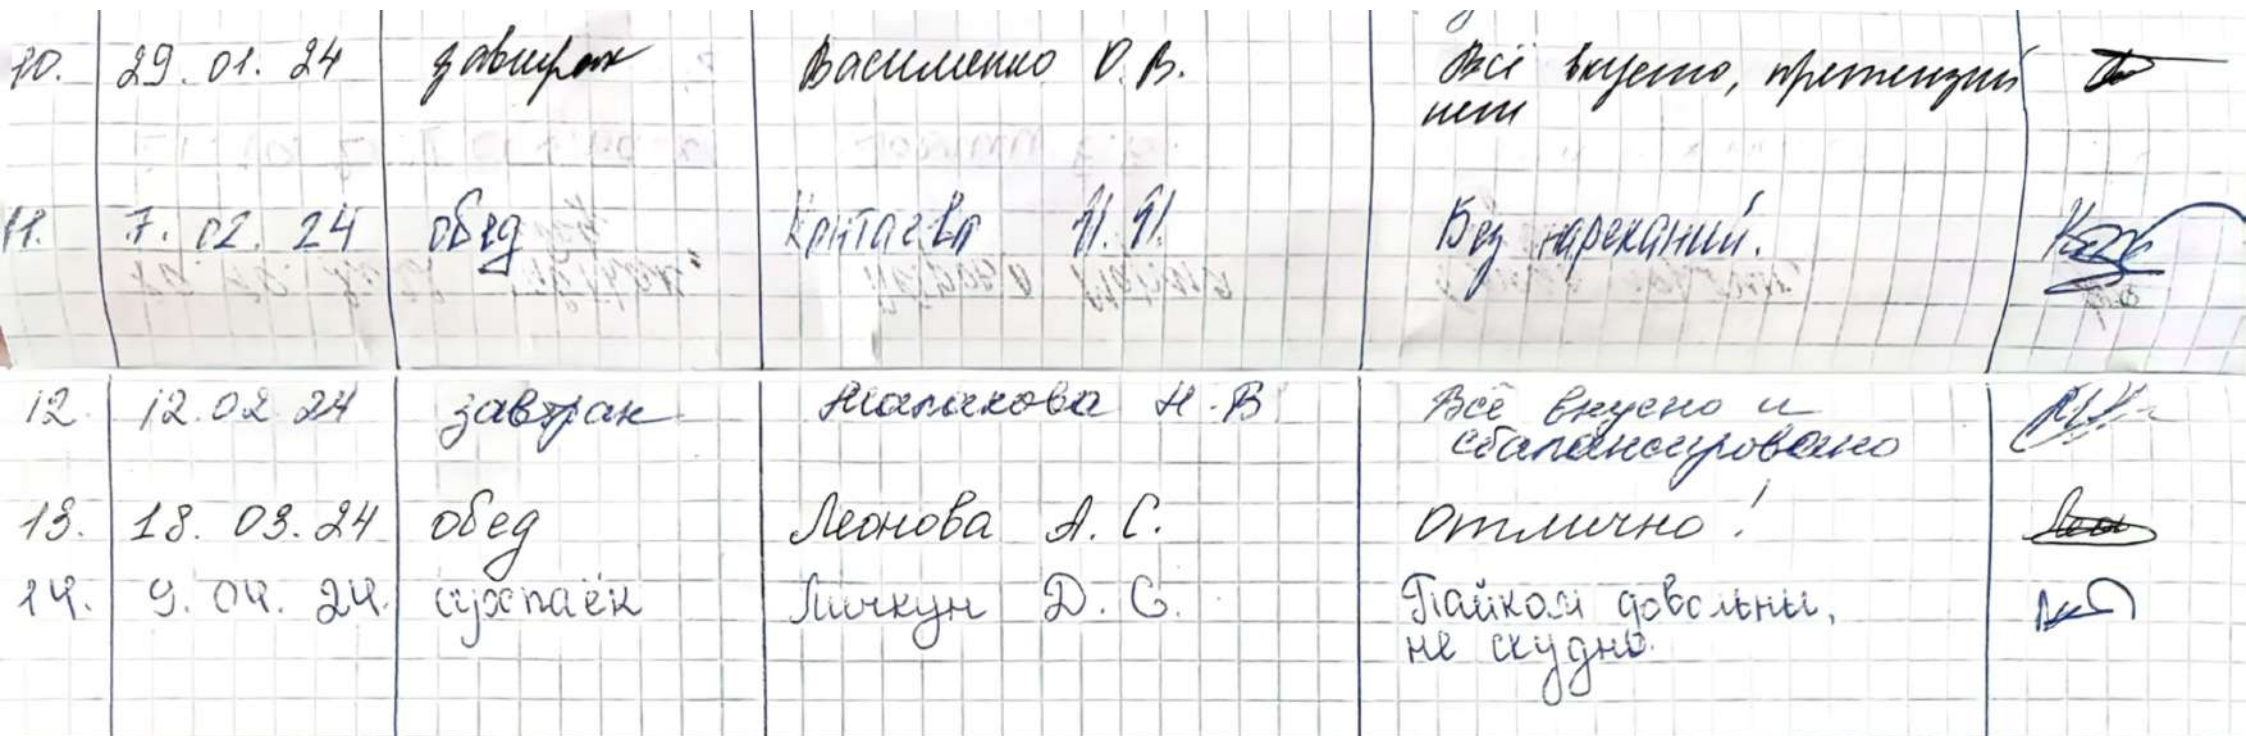 10. 29.01.24 завтрак Василенко О.В. Всё вкусно, претензий
нет
11. 7.02.24 обед И.И. Без нареканий.
12. 12.02 24 завтрак Н.В. Всё вкусно и
сбалансировано
13. 18.03.24 обед Леонова А.С. Отлично!
14. 9.04.24. сухпаёк Личкун Д.С. Пайком довольны,
не скудно.